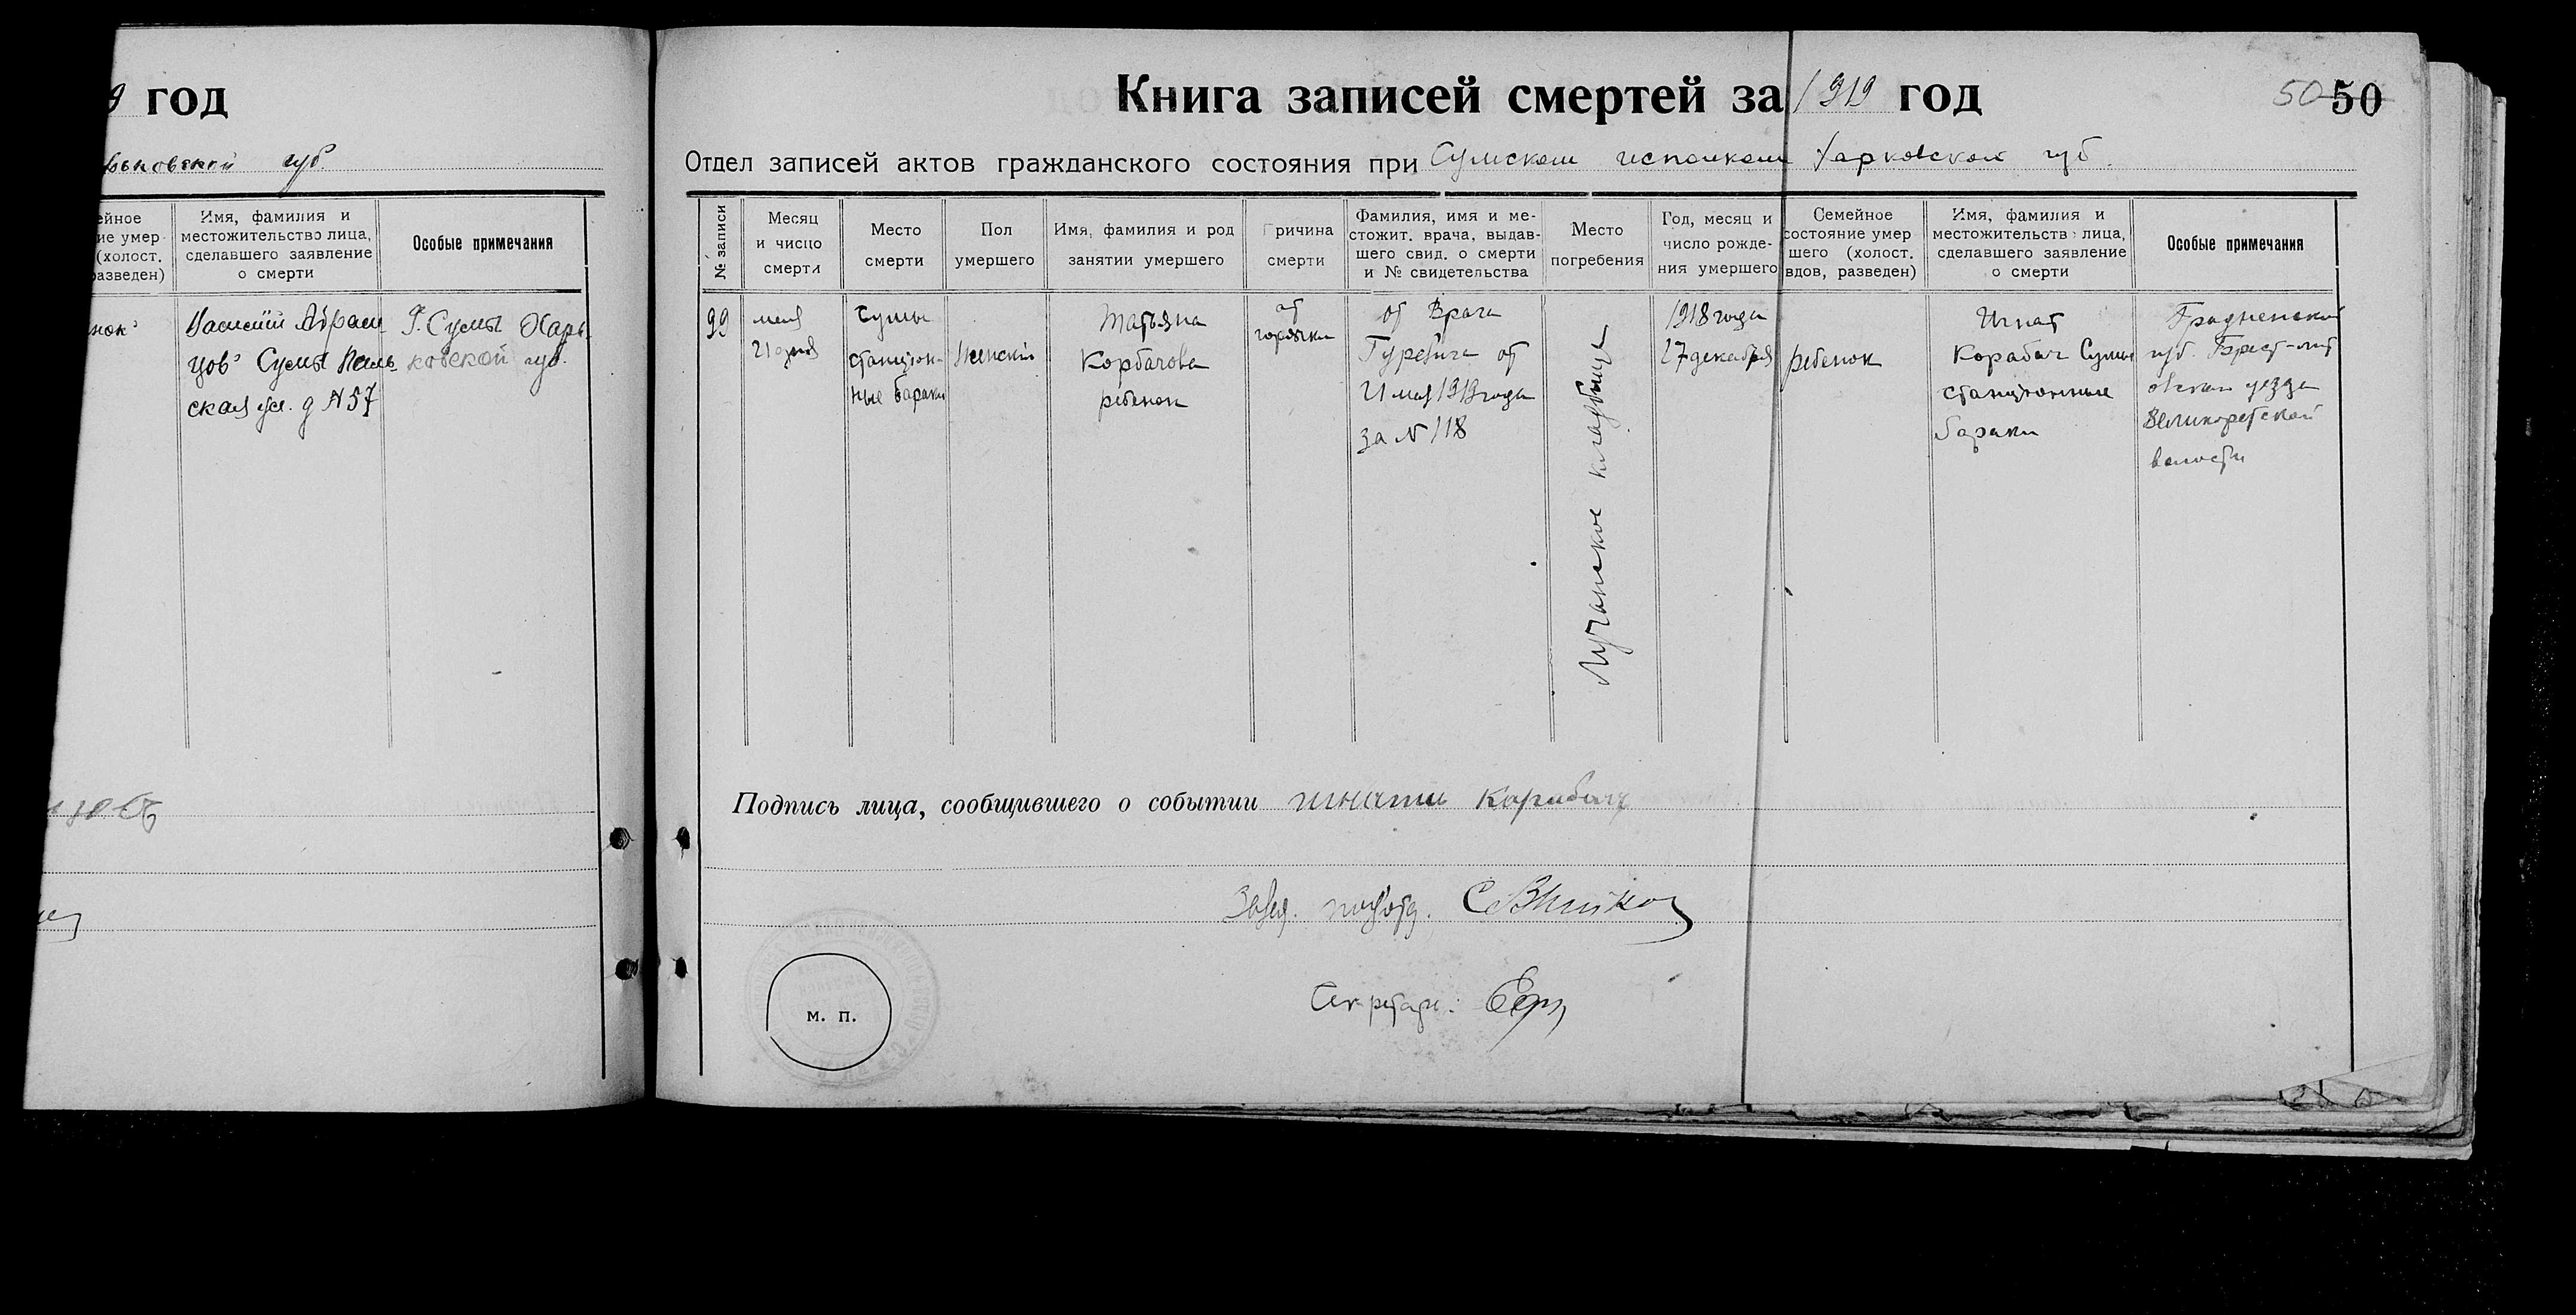 9 год
ьковской губ.
ейное
ие умер
(холост.
разведен)
Имя, фамилия и
местожительство лица,
сделавшего заявление
о смерти
Особые примечания
нок
Василий Абрам
цов Сумы
ская ул. д N 57
Г. Сумы Харь
ковской губ.
Книга записей смертей за 1919 год
50 50
Отдел записей актов гражданского состояния при Сумском исполкоме Харковской губ.
№ записи
Месяц
и число
смерти
Место
смерти
Пол
умершего
Имя, фамилия и род
занятии умершего
Причина
смерти
Фамилия, имя и ме-
стожит. врача, выдав-
шего свид. о смерти
и № свидетельства
Место
погребения
Год, месяц и
число рожде-
ния умершего
Семейное
состояние умер
шего (холост.
вдов, разведен)
Имя, фамилия и
местожительство лица,
сделавшего заявление
о смерти
Особые примечания
99
мая
21 дня
Сумы
станцион-
ные бараки
Женский
Татьяна
Корбачова
ребенок
от
горячки
от Врача
Гуревича от
21 мая 1919 года
за N 118
Лучанское кладбище
1918 года
27 декабря
ребенок
Игнат
Корабач Сумы
станционные
бараки
Гродненской
губ. Брест-лит
овскаго уезда
волости
Подпись лица, сообщившего о событии игнати Карабач
Завед. подотд.
Секретарь:
м. п.